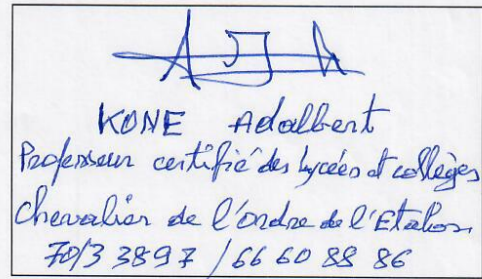 KONE Adalbert
Professeur certifié des lycées et collèges
Chevalier de l'ordre de l'Etalon
70133897 / 66 60 88 86